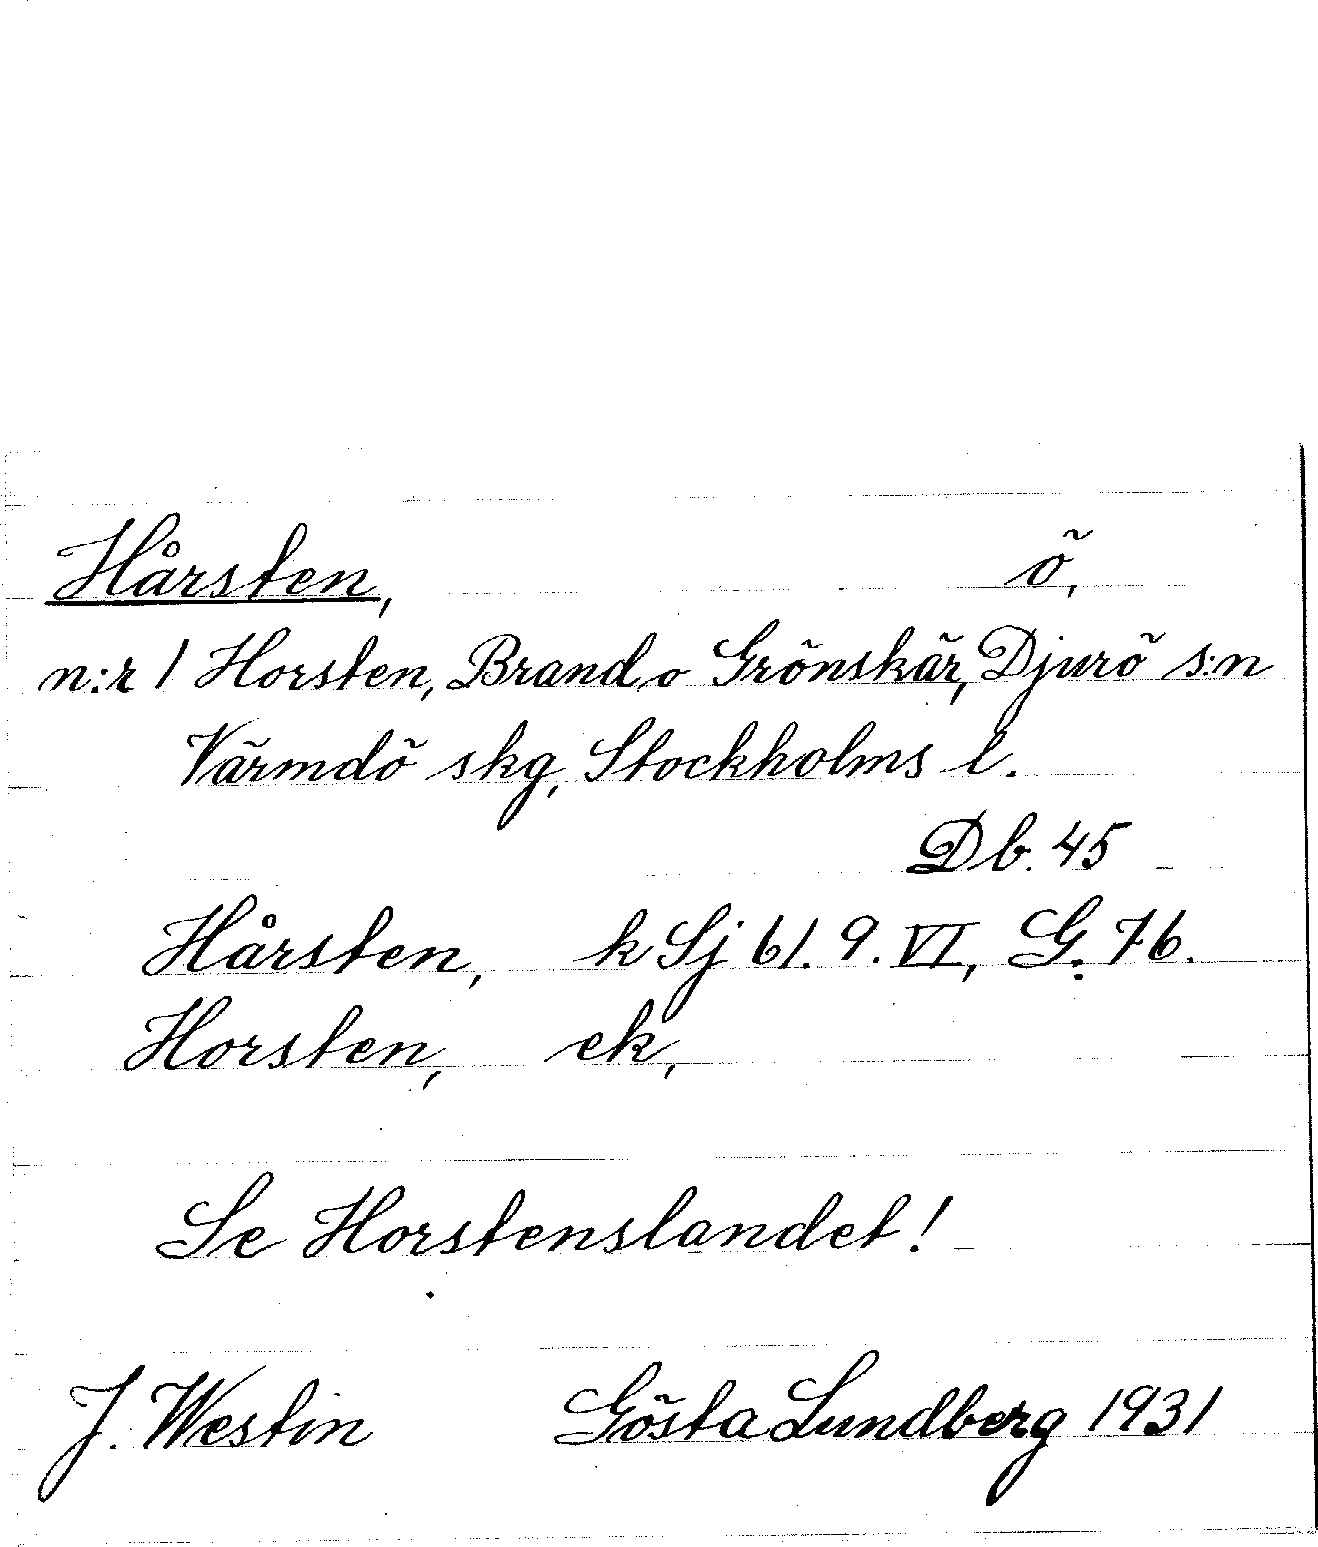 Hårsten, ö,
n:r 1 Horsten, Brand o Grönskär, Djurö s:n
Värmdö skg, Stockholms l.
Db. 45
Hårsten, k Sj bl. 9. VI, G. 76.
Horsten, ek,
Se Horstenslandet!
J. Westin Gösta Lundberg 1931